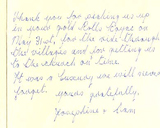 Thank you for picking us up
in your gold Rolls Royce on
May 31st, for the ride through
the villages and for getting us
to the church on time.
It was a luxury we will never
forget. Yours gratefully,
Josephine & Liam